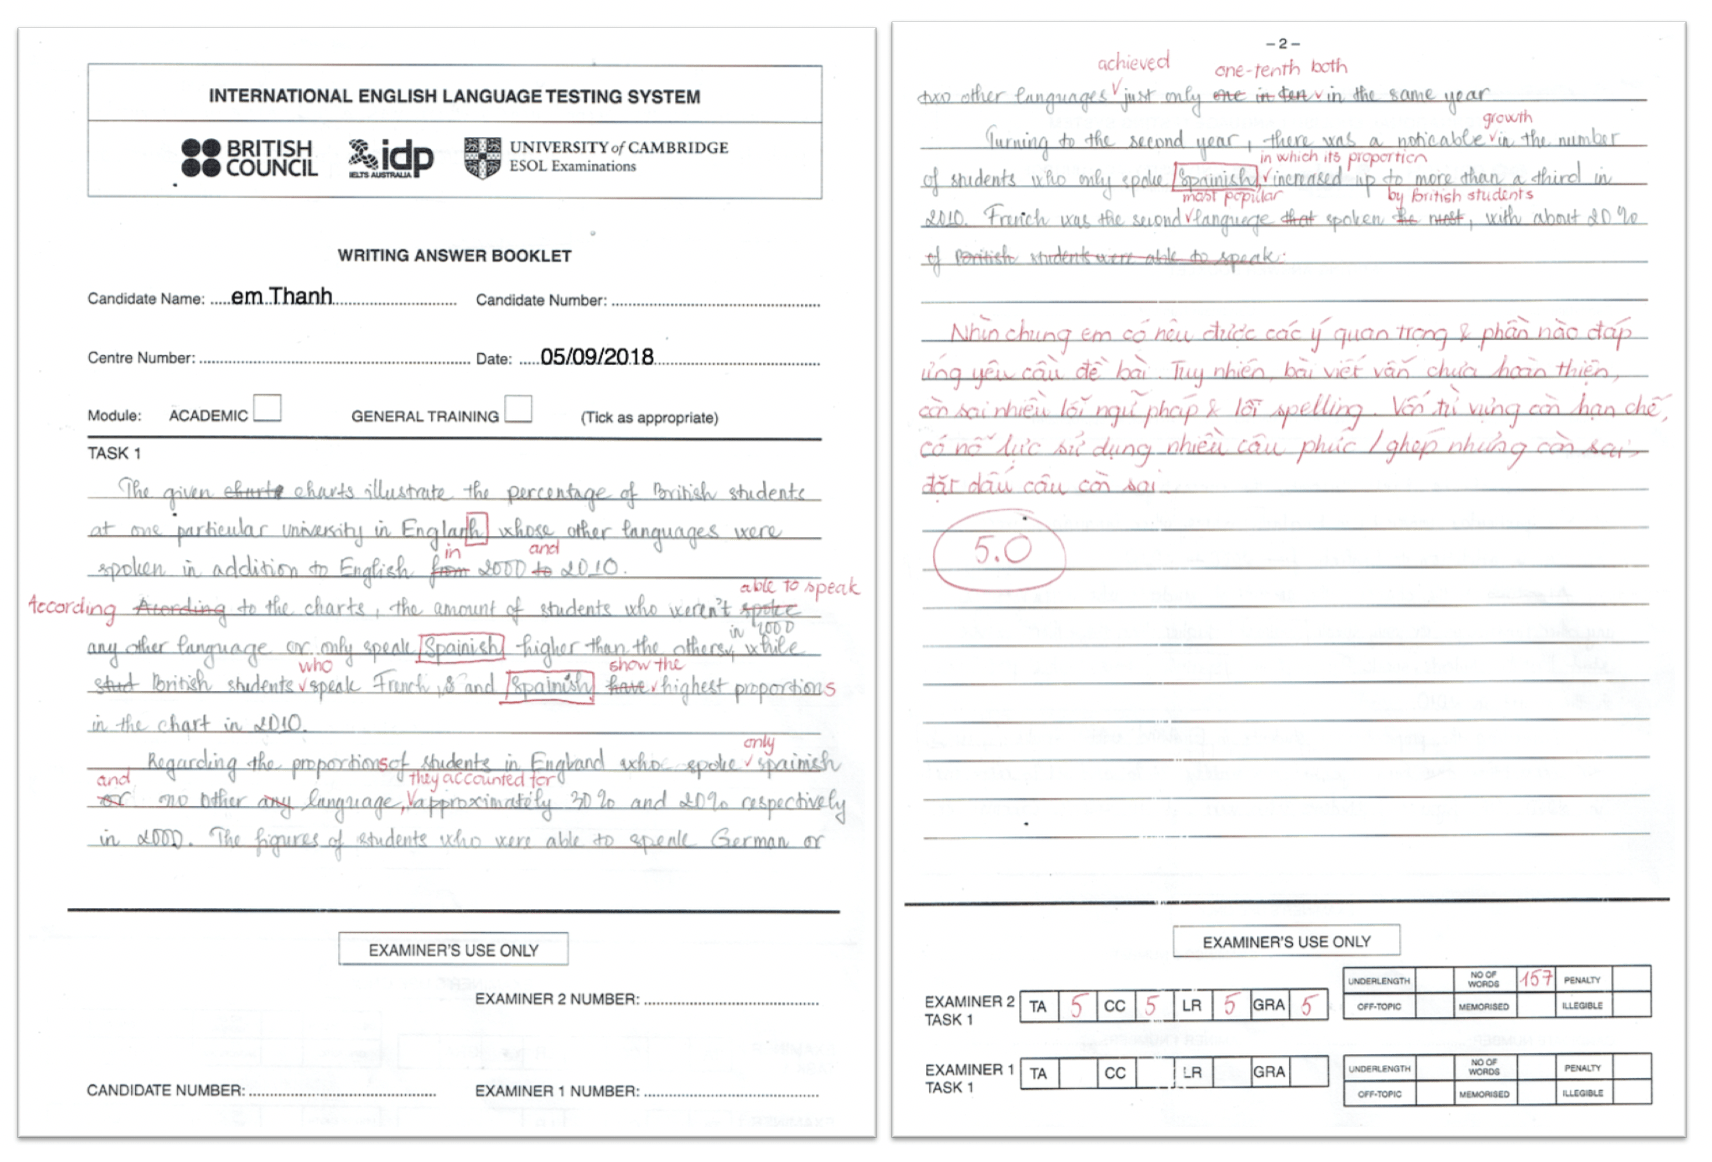 INTERNATIONAL ENGLISH LANGUAGE TESTING SYSTEM
BRITISH COUNCIL
idp
IELTS AUSTRALIA
UNIVERSITY of CAMBRIDGE
ESOL Examinations
WRITING ANSWER BOOKLET
Candidate Name: em Thanh Candidate Number:
Centre Number: Date: 05/09/2018
Module: ACADEMIC GENERAL TRAINING (Tick as appropriate)
TASK 1
The given charts charts illustrate the percentage of British students
at one particular university in Englanh whose other languages were
in and
spoken in addition to English from 2000 to 2010.
able to speak
According Acording to the charts, the amount of students who weren't spoke
in 2000
any other language or only speak Spainish higher than the others, while
who show the
stud British students speak French, & and Spainish have highest proportions
in the chart in 2010.
only
Regarding the proportions of students in England who spoke spainish
and they accounted for
or no other any language, approximately 30% and 20% respectively
in 2000. The figures of students who were able to speak German or
EXAMINER'S USE ONLY
EXAMINER 2 NUMBER:
CANDIDATE NUMBER: EXAMINER 1 NUMBER:
- 2 -
achieved one-tenth both
two other languages just only one in ten in the same year
growth
Turning to the second year, there was a noticable in the number
in which its proportion
of students who only spoke Spainish, increased up to more than a third in
most popular by British students
2010. French was the second language that spoken the most, with about 20%
of British students were able to speak.
Nhìn chung em có nêu được các ý quan trọng & phần nào đáp
ứng yêu cầu đề bài. Tuy nhiên, bài viết vẫn chưa hoàn thiện,
còn sai nhiều lỗi ngữ pháp & lỗi spelling. Vốn từ vựng còn hạn chế,
có nỗ lực sử dụng nhiều câu phức / ghép nhưng còn sai,
đặt dấu câu còn sai.
5.0
EXAMINER'S USE ONLY
EXAMINER 2 TASK 1 TA 5 CC 5 LR 5 GRA 5
UNDERLENGTH NO OF WORDS 157 PENALTY
OFF-TOPIC MEMORISED ILLEGIBLE
EXAMINER 1 TASK 1 TA CC LR GRA
UNDERLENGTH NO OF WORDS PENALTY
OFF-TOPIC MEMORISED ILLEGIBLE